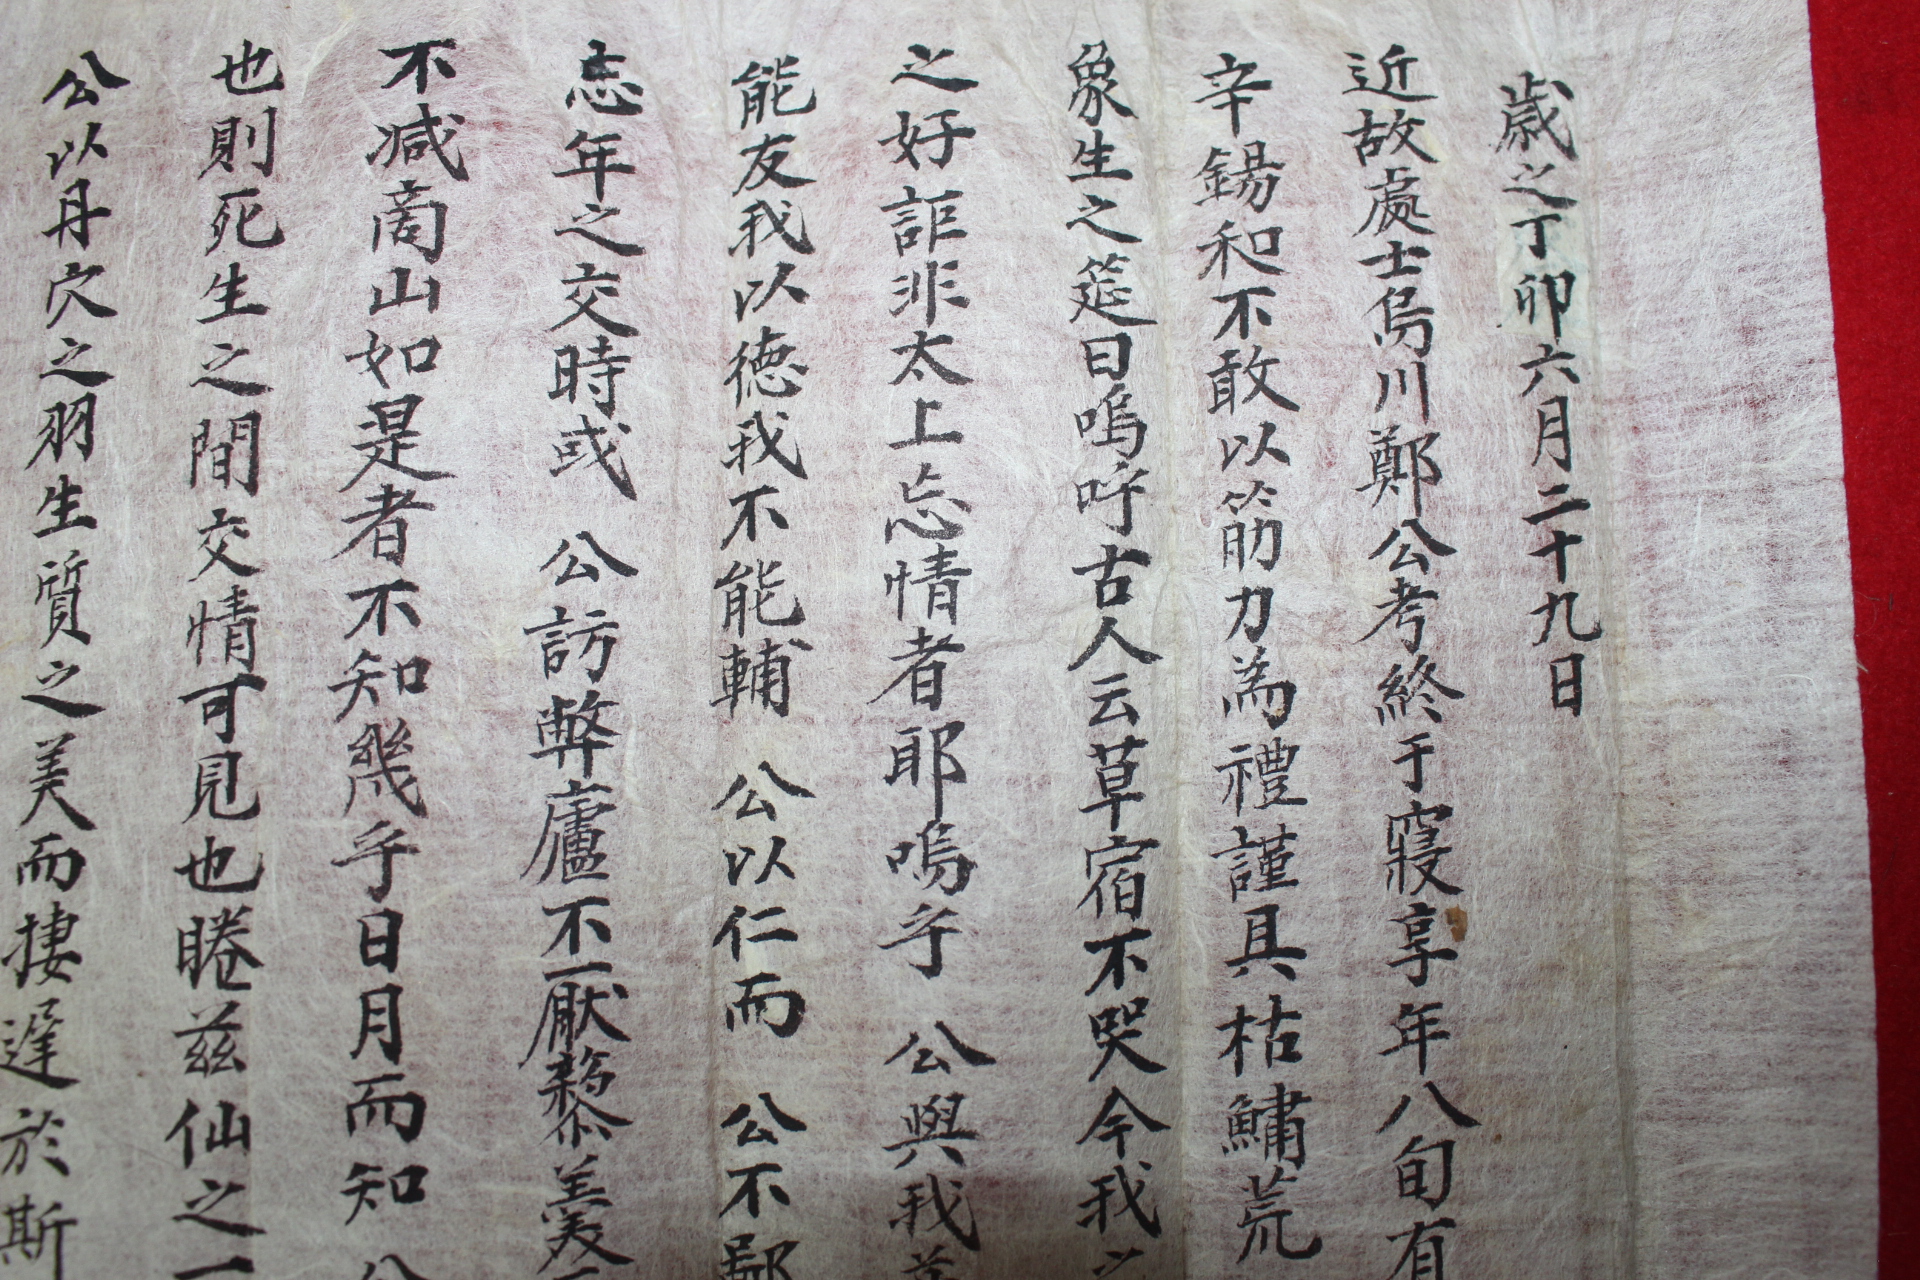 歲之丁卯六月二十九日
近故處士烏川鄭公考終于寢享年八旬有
辛錫和不敢以筋力為禮謹具枯鱐荒
象生之筵曰嗚呼古人云草宿不哭今我之
之好詎非太上忘情者耶嗚乎 公與我
能友我以德我不能輔 公以仁而 公不鄙
忘年之交時或 公訪弊廬不厭藜羹
不减商山如是者不知幾乎日月而知 公
也則死生之間交情可見也睠玆仙之一
公以丹穴之羽生質之美而捿遲於斯